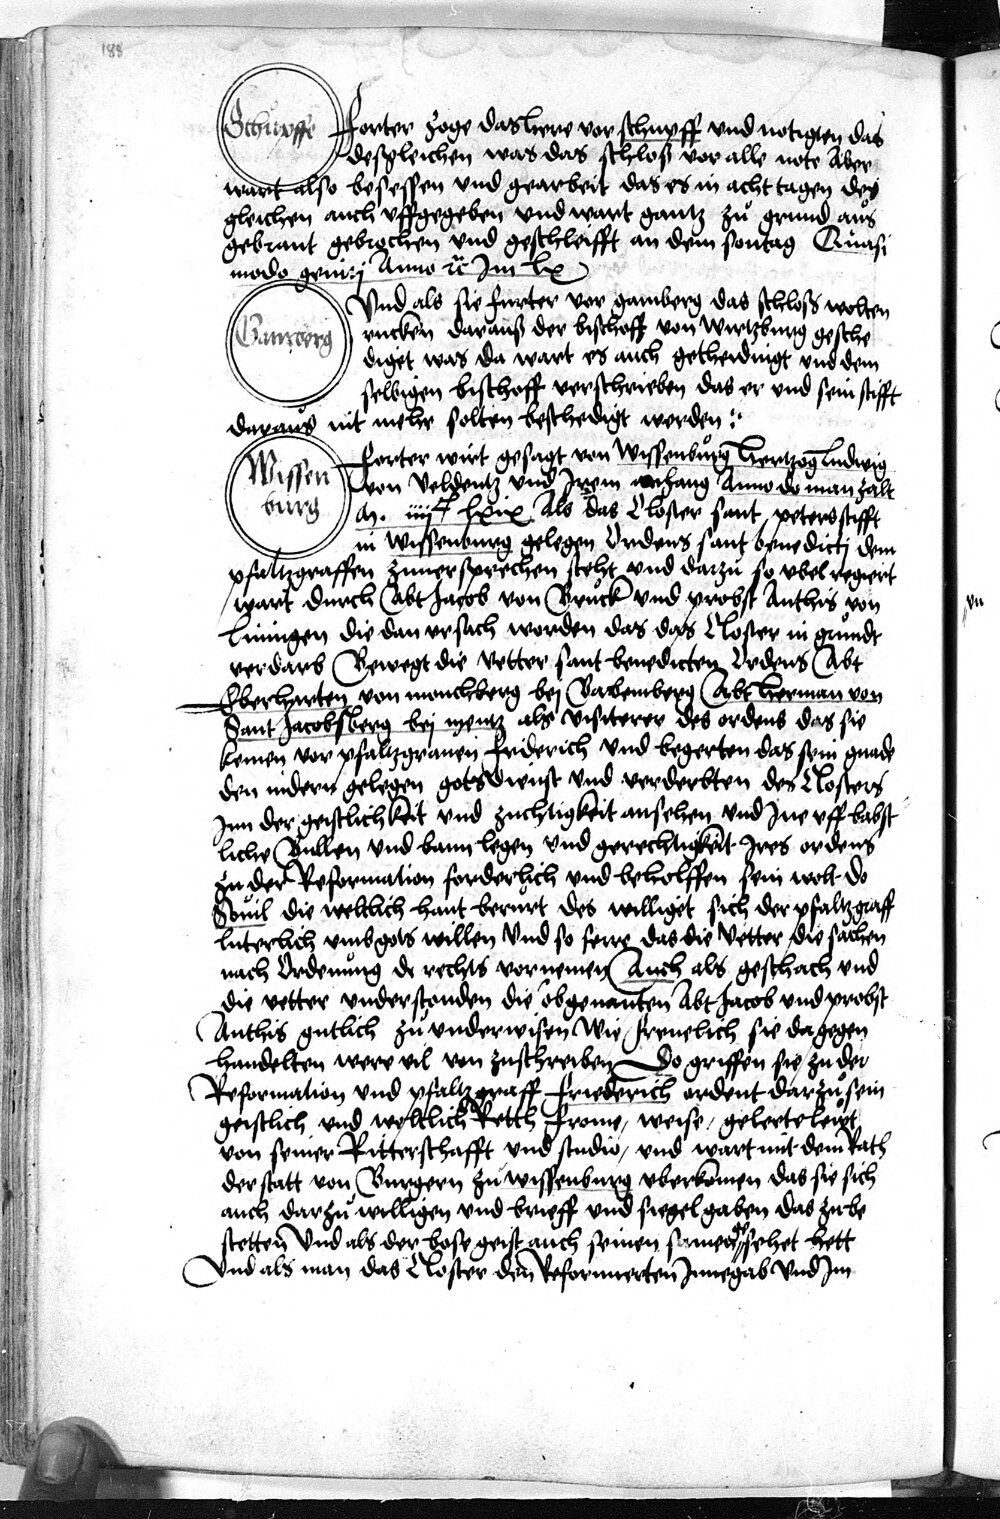 188
Schupffe
Forter zoge das here vor schupff und notigten das
desgleichen was das schloß vor alle note Aber
wart also besessen und gearbeit das es in acht tagen des
gleichen auch uffgegeben und wart gantz zů grund aus
gebrant gebrochen und geschleifft an dem sontag Quasi
modo geniti Anno &c Im lx
Gamberg
Und als sie furter vor gamberg das schloß wolten
rucken darauß der bischoff von Wirtzburg gesche
diget was da wart es auch getheidingt und dem
selbigen bischoff verschrieben das er und sein stifft
daraus nit mehe solten beschedigt werden :
Wissen
burg
Forter wirt gesagt von Wissenburg Hertzog Ludwig
von Veldentz und Irem anhang Anno do man zalt
M. iiijᶜ lxix Als das Closter sant peters stifft
in Wissenburg gelegen Ordens sant benedicti dem
pfaltzgraffen zuuersprechen steht und darzu so vbel regiert
wart durch Abt Jacob von Bruck und probst Anthis von
Liningen die dan ursach worden das das Closter in grundt
verdarb Bewegt die vetter sant benedicten Ordens Abt
Eberharten von monchberg bej Babemberg Abt Herman von
Sant Jacobsberg bej mentz als visiterer des ordens das sie
kemen vor pfaltzgrauen Friderich und begerten das sein gnade
den nidern gelegen gots dienst und verderbten des Closters
Inn der geistlichkeit und zuchtigkeit ansehen und Ine uff babst
liche Bullen und bann legen und gerechtigkeit Ires ordens
zu der Reformation forderlich und beholffen sein wolt do
Souil die weltlich hant berurt des williget sich der pfaltzgraff
luterlich umb gots willen Und so ferre das die Vetter die sachen
nach Ordenung de rechts vornemen Auch als geschach und
die vetter understonden die obgenanten Abt Jacob und probst
Anthis gutlich zů underwisen Wie freuelich sie dagegen
handelten were vil von zuschreiben Do griffen sie zu der
Reformation und pfaltzgraff Friederich ordent darzů sein
geistlich und weltlich Rettt frome, weise, gelerte leut
von seiner Ritterschafft und studio, und wart mit dem Rath
der statt von Burgern zů wissenburg uberkomen das sie sich
auch darzů willigen und brieff und siegel gaben das zube
stetten Und als der bose geist auch seinen samen gesehet hett
Und als man das Closter den Reformierten Innegab Und Im